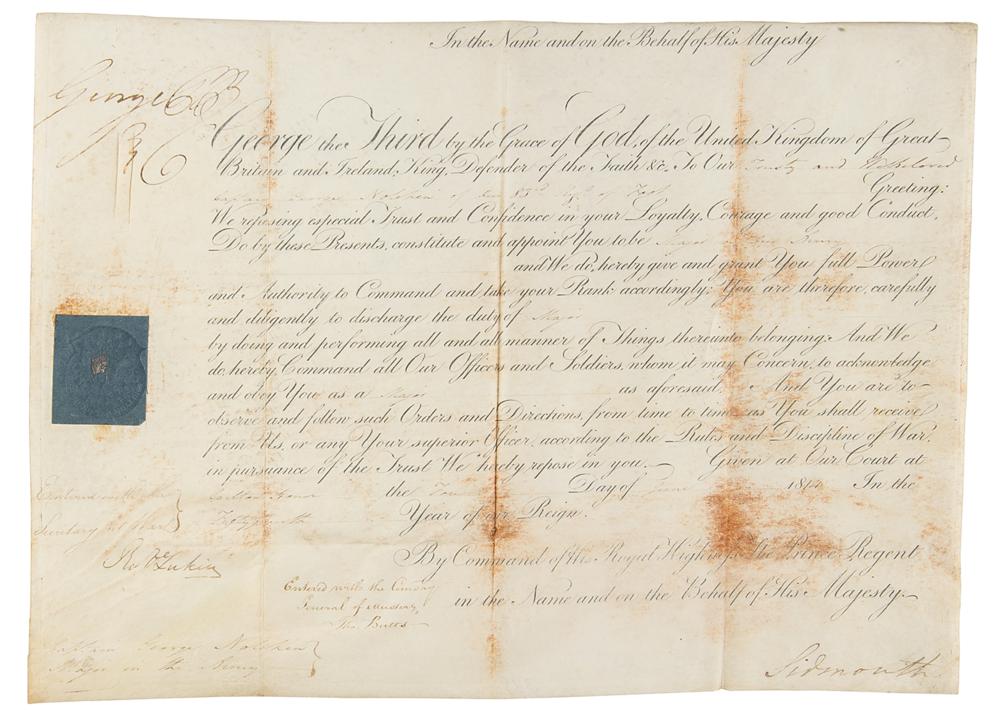 In the Name and on the Behalf of His Majesty
George PR
George the Third by the Grace of God, of the United Kingdom of Great
Britain and Ireland, King, Defender of the Faith &c. To Our Trusty and Welbeloved
Captain George of the 83rd of Foot Greeting:
We reposing especial Trust and Confidence in your Loyalty, Courage and good Conduct,
Do by these Presents, constitute and appoint You to be Major in the Army
and We do, hereby give and grant You full Power
and Authority to Command and take your Rank accordingly: You are therefore, carefully
and diligently to discharge the duty of Major
by doing and performing all and all manner of Things thereunto belonging: And We
do, hereby, Command all Our Officers and Soldiers, whom it may Concern, to acknowledge
and obey You as a Major as aforesaid. And You are to
observe and follow such Orders and Directions, from time to time, as You shall receive
from Us, or any Your superior Officer, according to the Rules and Discipline of War,
in pursuance of the Trust We hereby repose in you. Given at Our Court at
Carlton House the Day of June 1814 In the
Fifty fourth Year of our Reign.
Entered with the
Secretary at War
By Command of His Royal Highness The Prince Regent
in the Name and on the Behalf of His Majesty.
Entered with the
General of Musters
Tho. Butts
Captain George
Major in the Army
Sidmouth